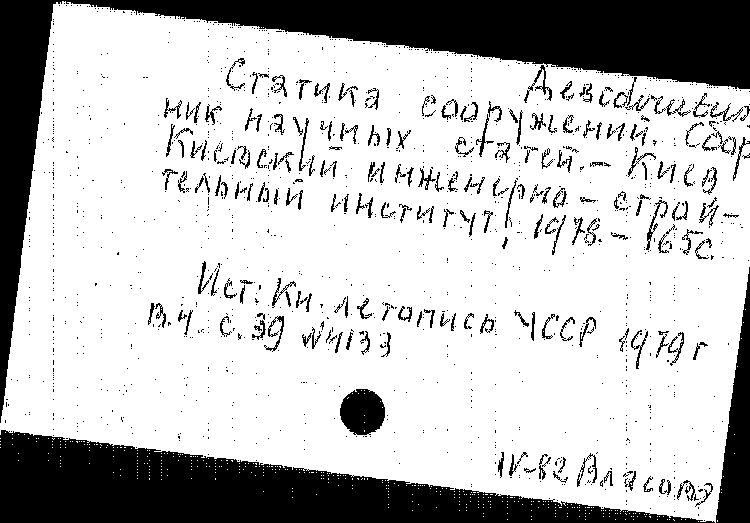 Статика сооружений. Сбор
ник научных статей. – Киев
Киевский инженерно – строй–
тельный институт, 1978. – 165с
Ист: Кн. летопись УССР 1979г
В.4 с. 39 №4133
IV-82 Власова